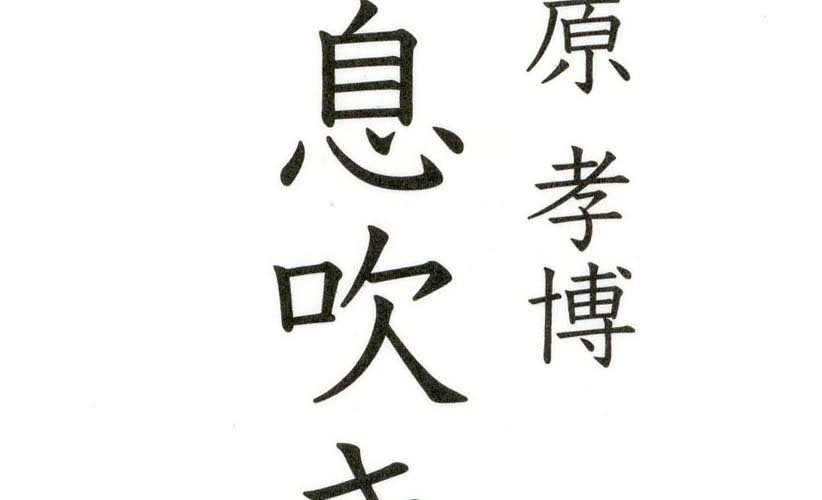 原 孝博
息吹